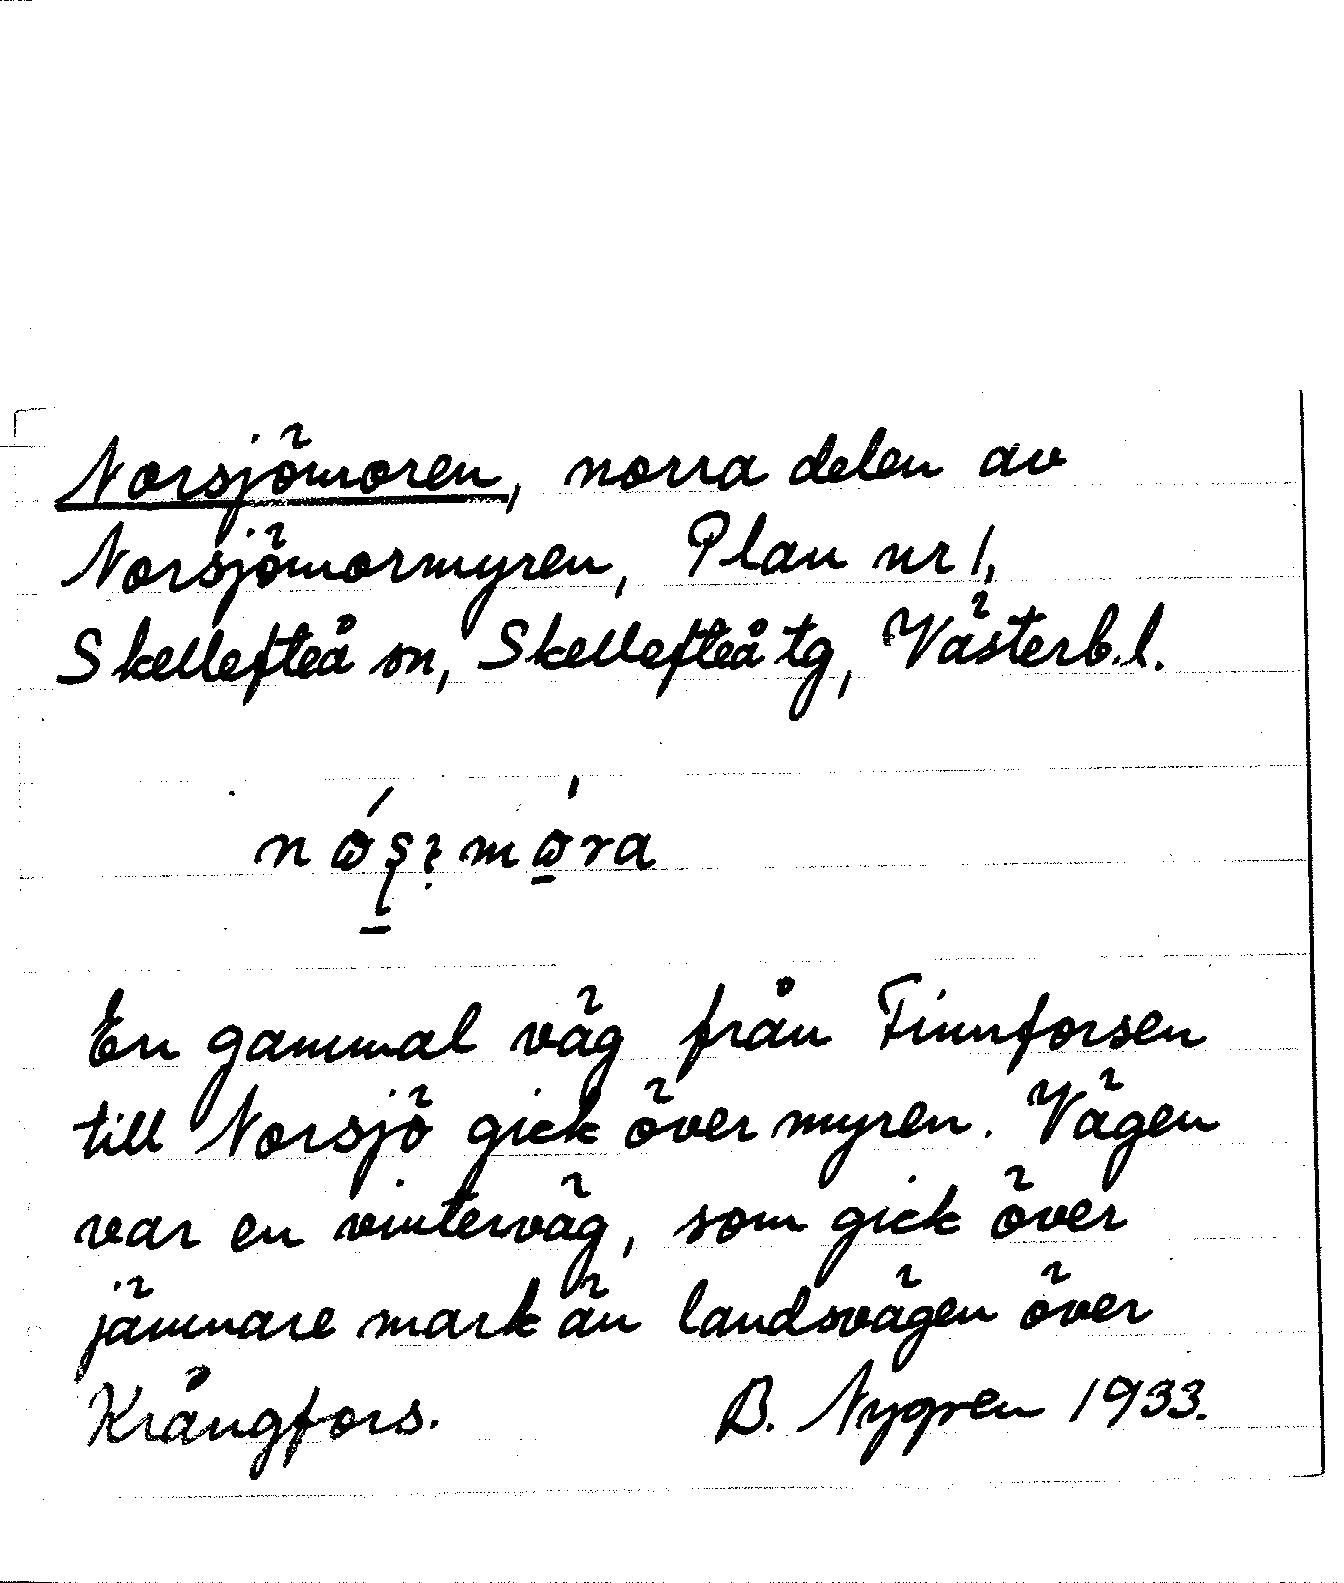 Norsjömoren, norra delen av
Norsjömormyren, Plan nr 1,
Skellefteå sn, Skellefteå tg, Västerb.l.
En gammal väg från Finnforsen
till Norsjö gick över myren. Vägen
var en vinterväg, som gick över
jämnare mark än landsvägen över
Krångfors. B. Nygren 1933.